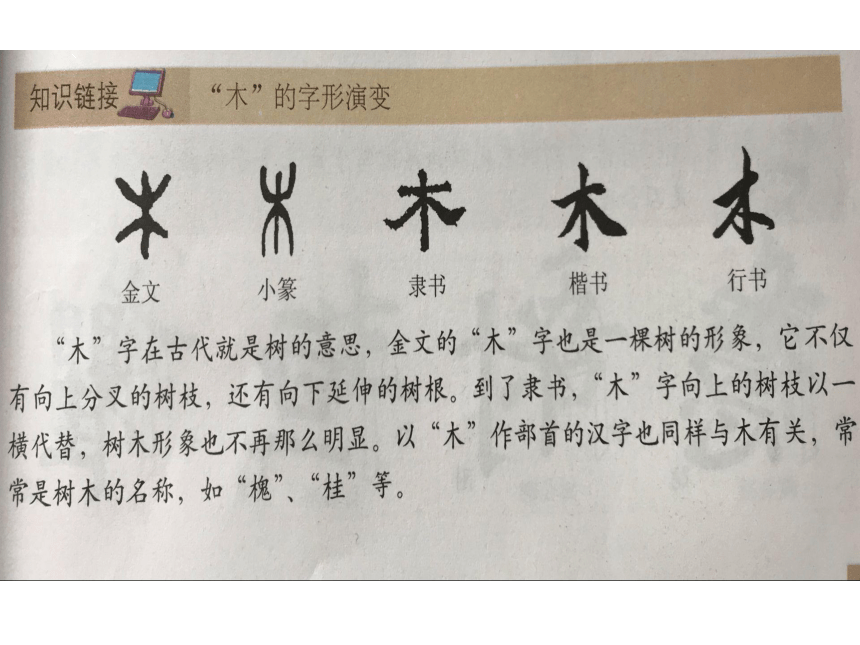 知识链接 “木”的字形演变
木 木 木 木 木
金文 小篆 隶书 楷书 行书
“木”字在古代就是树的意思，金文的“木”字也是一棵树的形象，它不仅
有向上分叉的树枝，还有向下延伸的树根。到了隶书，“木”字向上的树枝以一
横代替，树木形象也不再那么明显。以“木”作部首的汉字也同样与木有关，常
常是树木的名称，如“槐”、“桂”等。